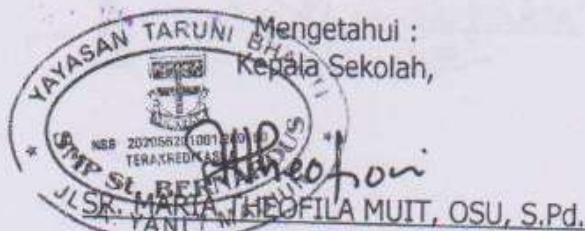 Mengetahui :
Kepala Sekolah,
YAYASAN TARUNI BHAKTI
TERAKREDITASI
SMP St. BERNARDUS
SR. MARIA THEOFILA MUIT, OSU, S.Pd.